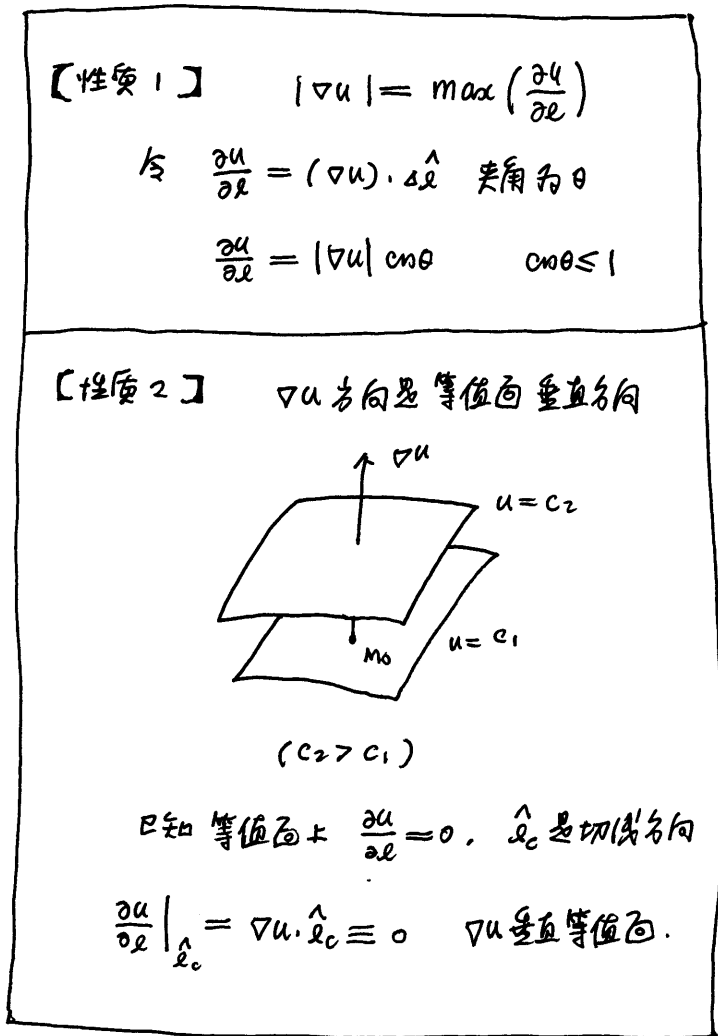 【性质1】 |∇u| = max(∂u/∂l)
令 ∂u/∂l = (∇u)·Δl̂ 夹角为θ
∂u/∂l = |∇u| cosθ cosθ ≤ 1
【性质2】 ∇u方向是等值面垂直方向
∇u
u = C₂
M₀ u = C₁
(C₂ > C₁)
已知等值面上 ∂u/∂l = 0, l̂c是切线方向
∂u/∂l|l̂c = ∇u·l̂c ≡ 0 ∇u垂直等值面.